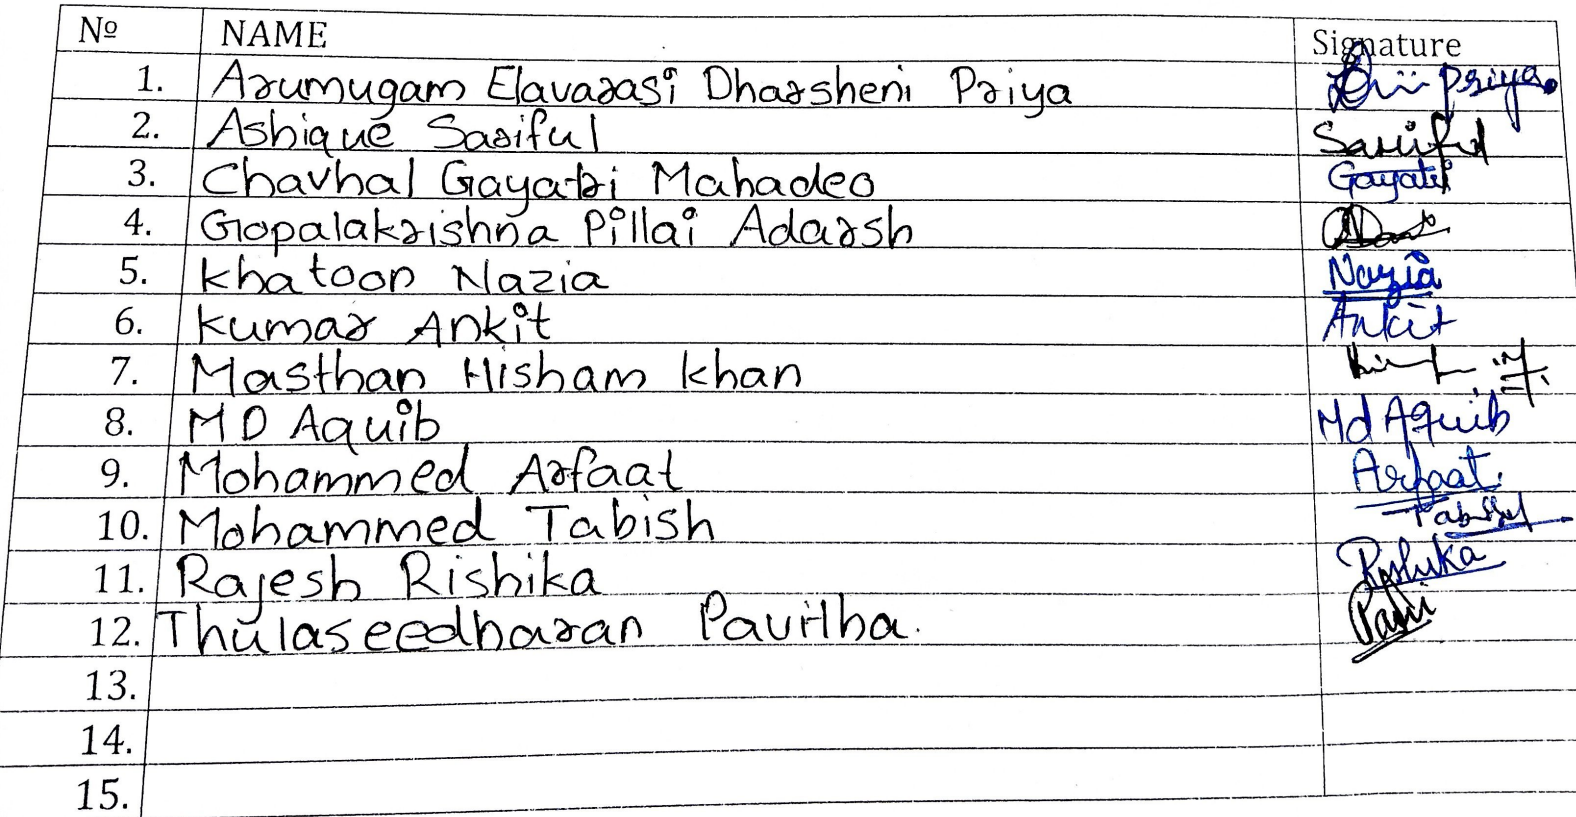 № NAME Signature
1. Arumugam Elavarasi Dharsheni Priya Priya
2. Ashique Sariful Sariful
3. Chavhal Gayatri Mahadeo Gayatri
4. Gopalakrishna Pillai Adarsh
5. Khatoon Nazia Nazia
6. Kumar Ankit Ankit
7. Masthan Hisham Khan
8. MD Aquib Md Aquib
9. Mohammed Arfaat Arfaat
10. Mohammed Tabish Tabish
11. Rajesh Rishika Rishika
12. Thulaseedharan Pavitha. Pavi
13.
14.
15.